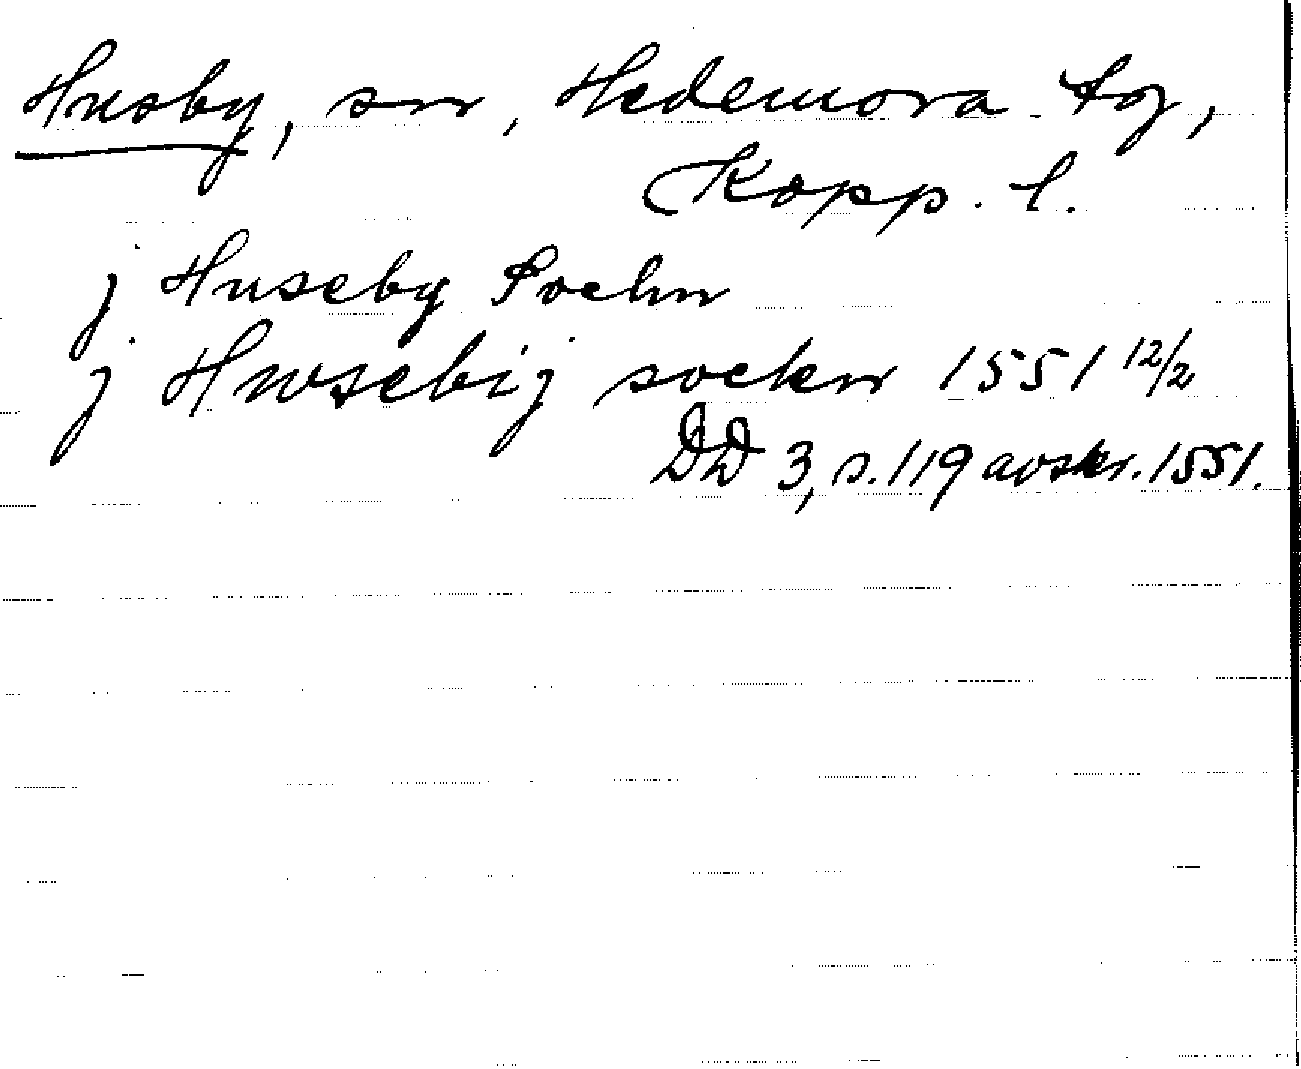 Husby, sn, Hedemora tg,
Kopp. l.
j Huseby Sochn
j Hwsebij sockn 1551 12/2
DD 3, s. 119 avskr. 1551.